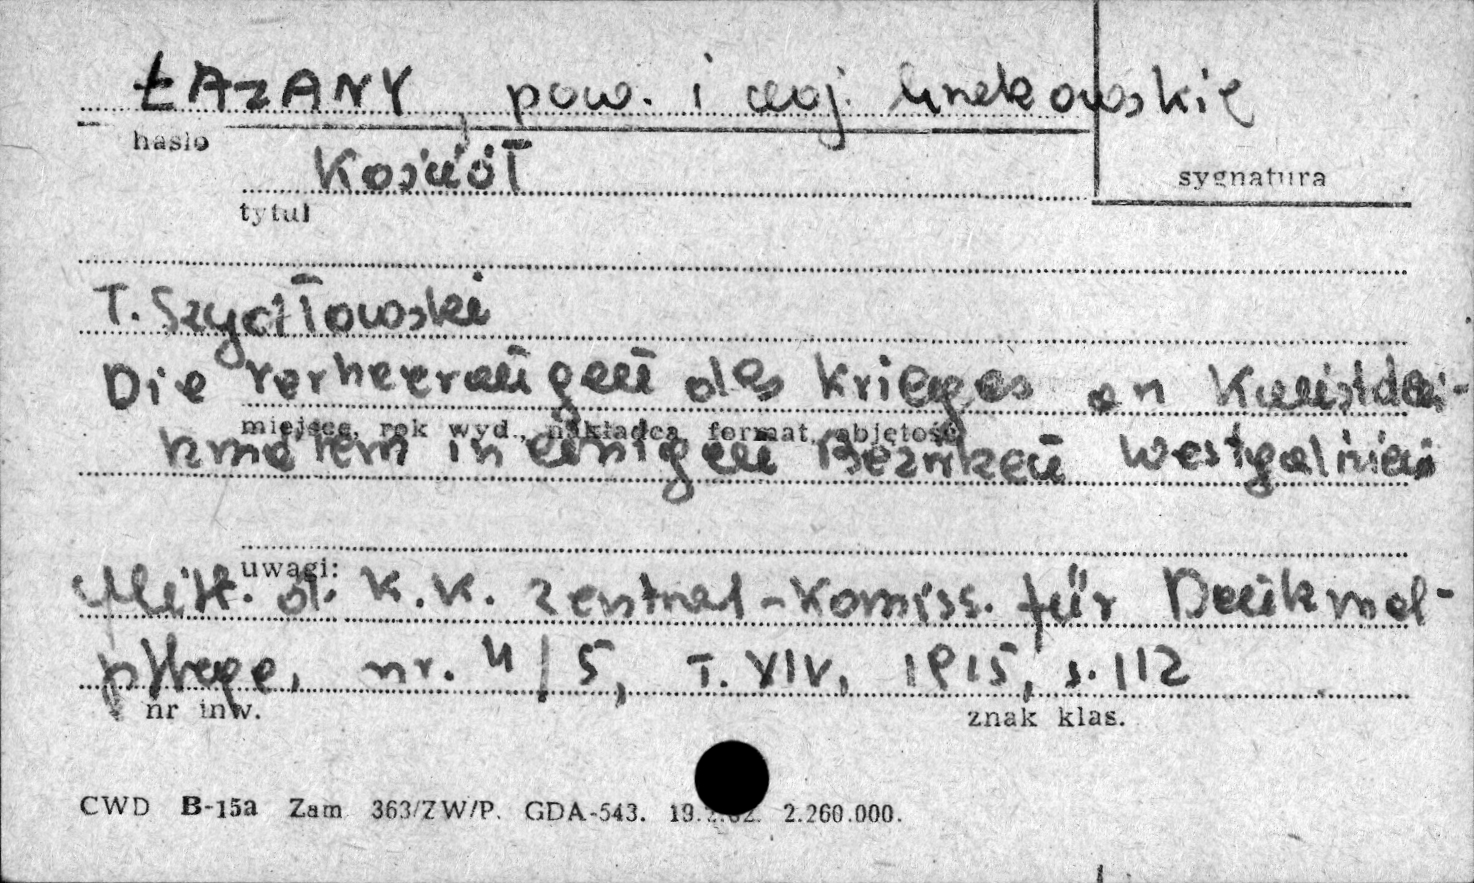 ŁAZANY, pow. i woj. krakowskie
hasło
Kościół
sygnatura
tytuł
T. Szydłowski
Die Verheerungen des Krieges an Kunstden-
miejsce, rok wyd., nakładca, format, objętość
kmälern in einigen Bezirken Westgaliziens
uwagi:
Mitt. d. K.K. Zentral-Komiss. für Denkmal-
pflege, nr. 4/5, T. XIV, 1915, s. 112
nr inw. znak klas.
CWD B-15a Zam 363/ZW/P. GDA-543. 2.260.000.